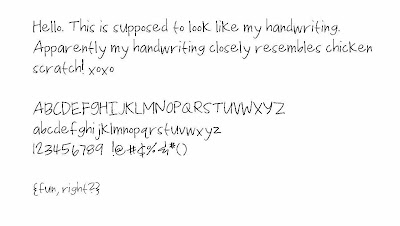 Hello. This is supposed to look like my handwriting.
Apparently my handwriting closely resembles chicken
scratch! xoxo
ABCDEFGHIJKLMNOPQRSTUVWXYZ
abcdefghijklmnopqrstuvwxyz
123456789 !@#$%&*()
{fun, right?}